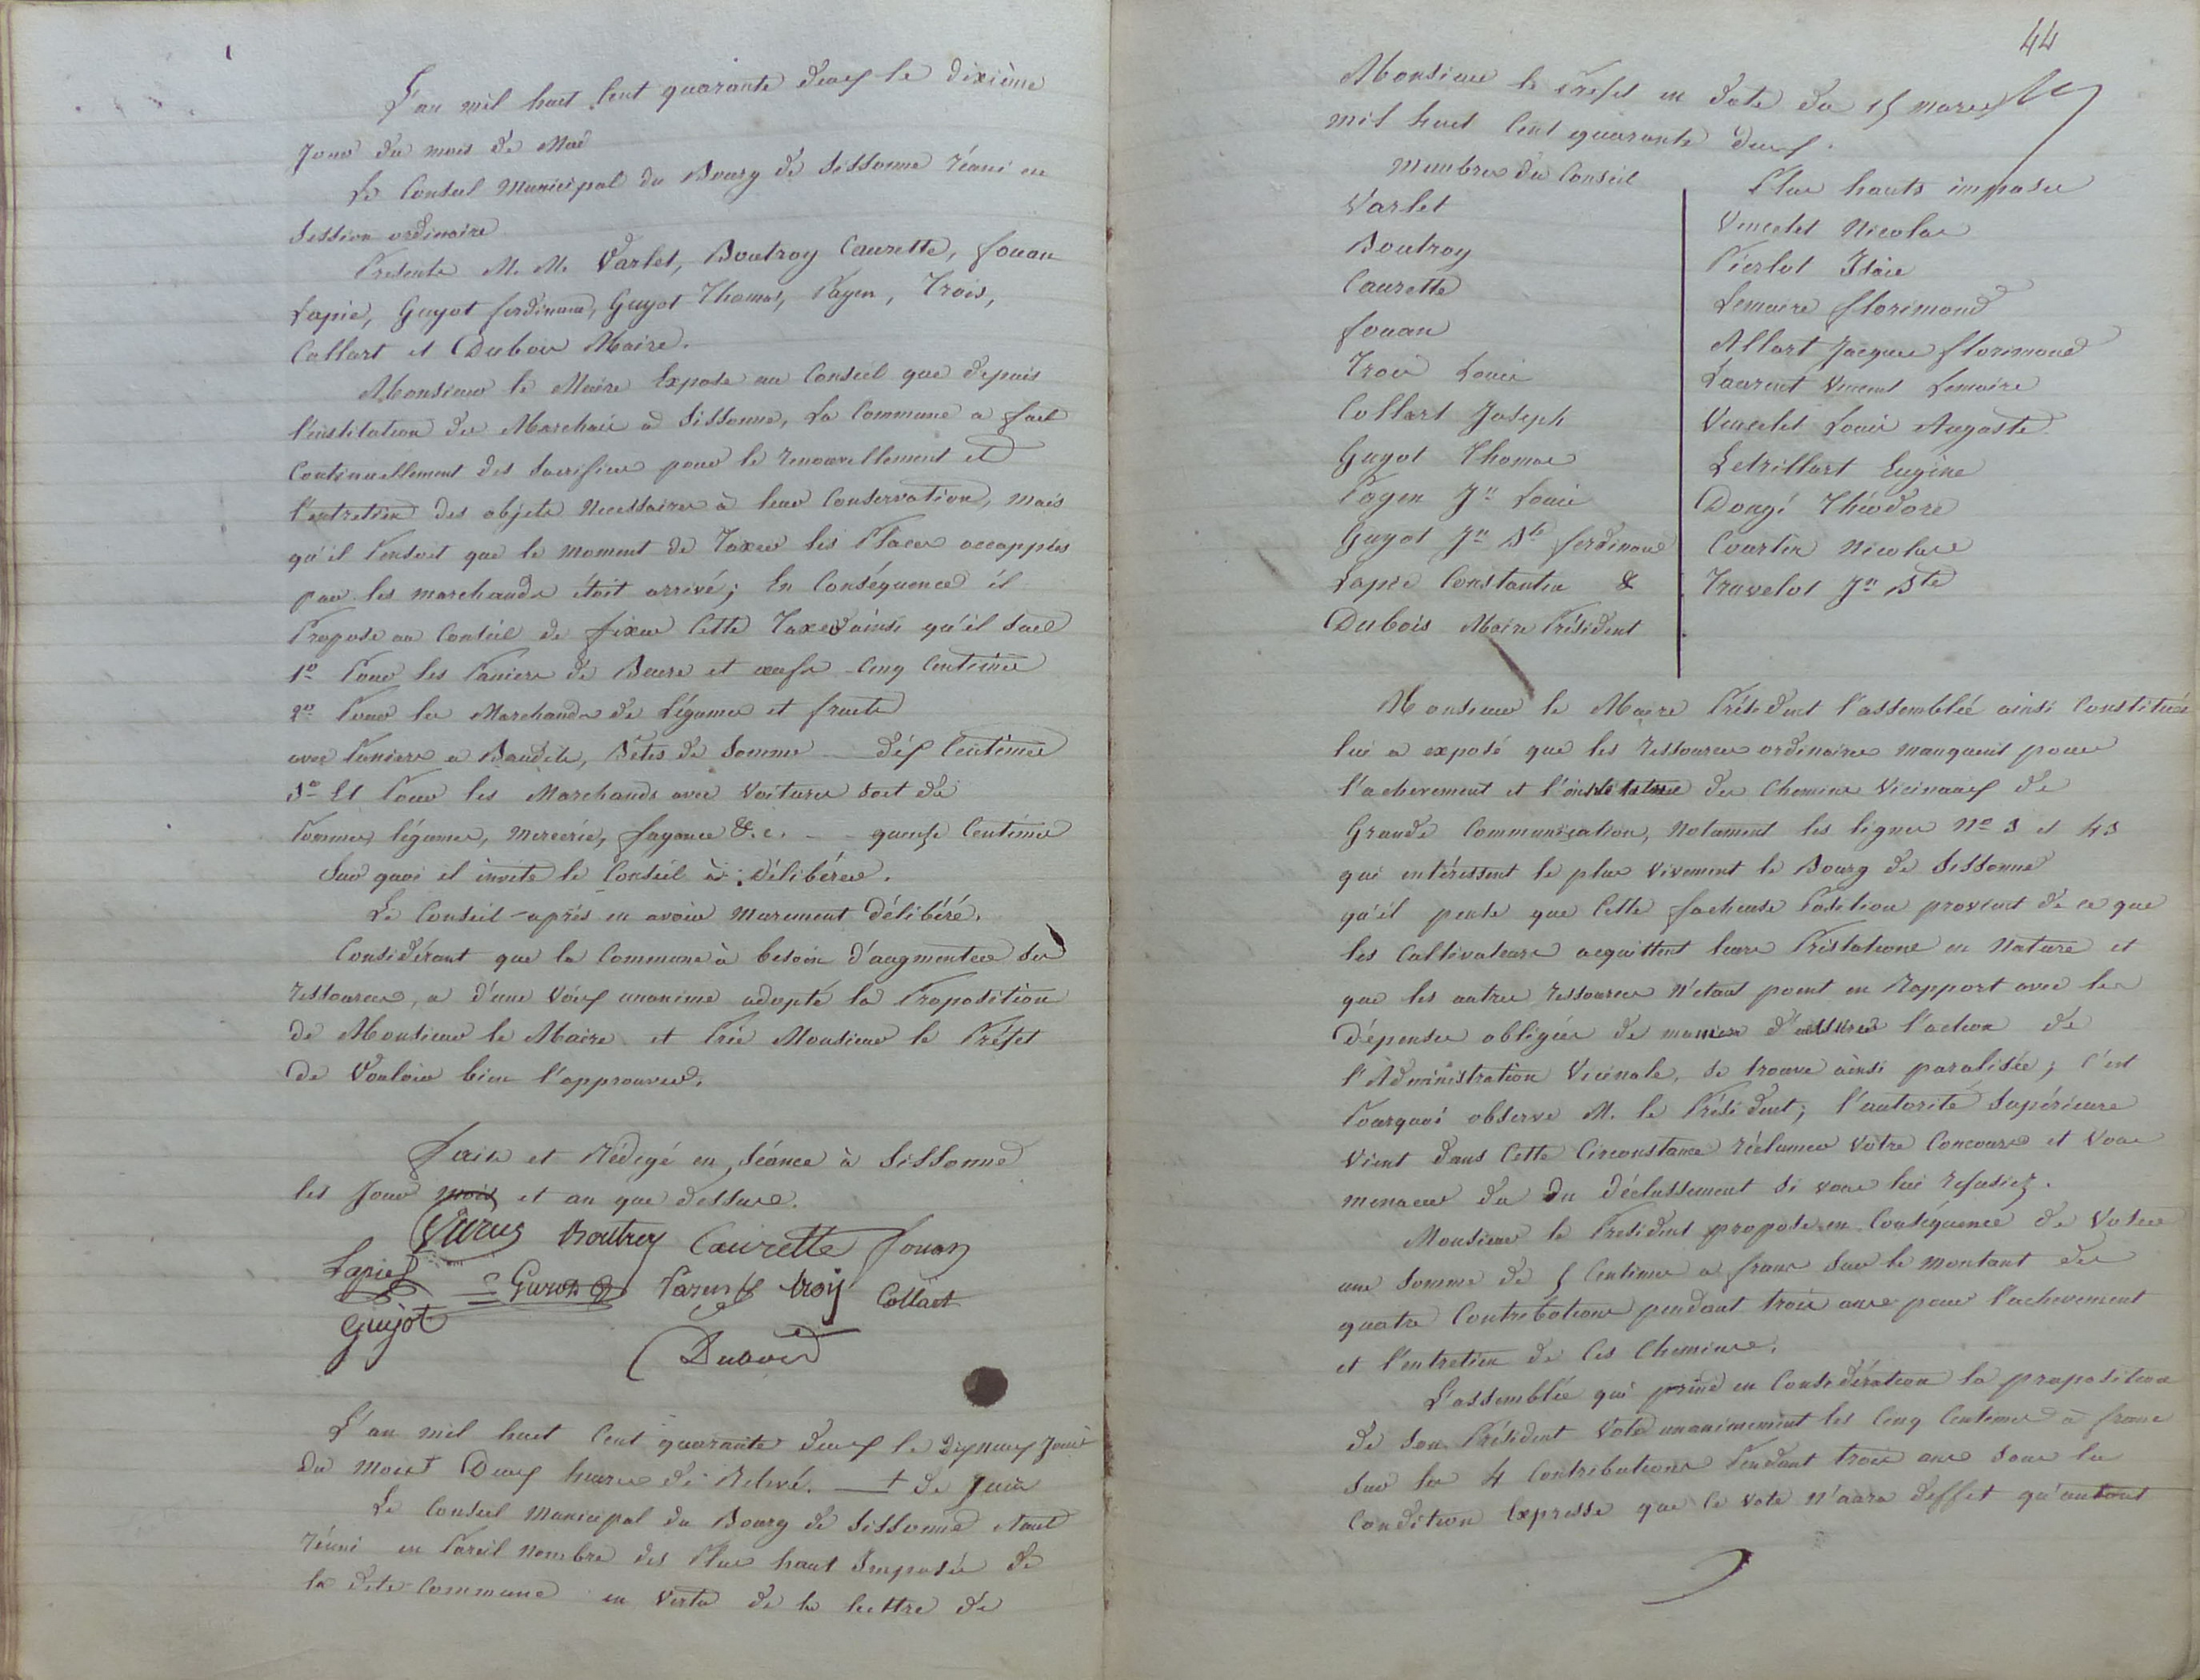 L'an mil huit Cent quarante deux le dixième
Jour du mois de Mai
Le Conseil Municipal du Bourg de Sissonne réuni en
Session ordinaire
Présents M. M. Varlet, Boutroy Caurette, fouan
Lapie, Guyot ferdinand, Guyot Thomas, Payen, Trois,
Collart et Dubois Maire.
Monsieur le Maire Expose au Conseil que depuis
l'institution des Marchais à Sissonne, La Commune a fait
Continuellement des Sacrifices pour le renouvellement et
l'entretien des objets Necessaires à leur Conservation, mais
qu'il Pensoit que le moment de Taxer les Places occappées
par les marchands étoit arrivé; En Conséquence il
Propose au Conseil de fixer Cette Taxe ainsi qu'il suit
1º Pour les Paniers de Beure et œufs Cinq Centimes
2º Pour les Marchands de Légumes et fruits
avec Paniers et Baudets, Bêtes de Somme — dix Centimes
3º Et Pour les Marchands avec Voitures soit de
Pommes, légumes, mercerie, fayance &. c. — quinze Centimes
Sur quoi il invite le Conseil à Délibérer.
Le Conseil après en avoir murement Délibéré.
Considérant que la Commune à besoin d'augmenter ses
ressources, a d'une Voix unanime adopté la Proposition
de Monsieur le Maire et Prie Monsieur le Préfet
de Vouloir bien l'approuver.
Fait et Rédigé en Séance à Sissonne
les Jour mois et an que dessus.
Boutroy Caurette fouan
Lapie Guyot troij Collart
Guijot
Dubois
L'an mil huit Cent quarante deux le dix neuf Jour
du mois + Deux heures de Relevé. — + de Juin
Le Conseil Municipal du Bourg de Sissonne étant
réuni en Pareil nombre des Plus haut Imposés de
la dite Commune en Vertu de la lettre de
44
Monsieur le Préfet en date du 15 mars
mil huit Cent quarante deux.
Membres du Conseil
Varlet
Boutroy
Caurette
fouan
Trois Louis
Collart Joseph
Guyot Thomas
Payen Jn Louis
Guyot Jn Bte ferdinand
Lapie Constantin &
Dubois Maire Président
Plus hauts imposés
Vincelet Nicolas
Pierlot Isaie
Lemaire florimond
Allart Jacques florimond
Laurent Vincent Lemaire
Vincelet Louis Auguste
Letrillart Eugène
Dongé Théodore
Courtin Nicolas
Travelot Jn Bte
Monsieur le Maire Président l'assemblée ainsi Constituée
lui a exposé que les ressources ordinaires manquent pour
l'achevement et des Chemins Vicinaux de
Grande Communication, Notament les lignes No 3 et 43
qui intéressent le plus Vivement le Bourg de Sissonne
qu'il pense que Cette facheuse Position provient de ce que
les Cultivateurs acquittent leurs Préstations en Nature et
que les autres ressources N'etant point en Rapport avec les
dépenses obligées de maniere d'assurer l'action de
l'Administration Vicinale, se trouve ainsi paralisée; C'est
Pourquoi observe M. le Président; l'autorité Supérieure
Vient dans Cette Circonstance réclamer Votre Concours et Vous
menacer du du déclassement si vous lui refusiez.
Monsieur le President propose en Conséquence de Voter
une Somme de 5 Centimes a franc sur le Montant des
quatre Contributions pendant trois ans pour l'achevement
et l'entretien de Ces Chemins.
L'assemblée qui prend en Considération la proposition
de son Président Vote unanimement les Cinq Centimes à franc
sur les 4 Contributions Pendant trois ans sous la
Condition Expresse que Ce Vote n'aura d'effet qu'autant